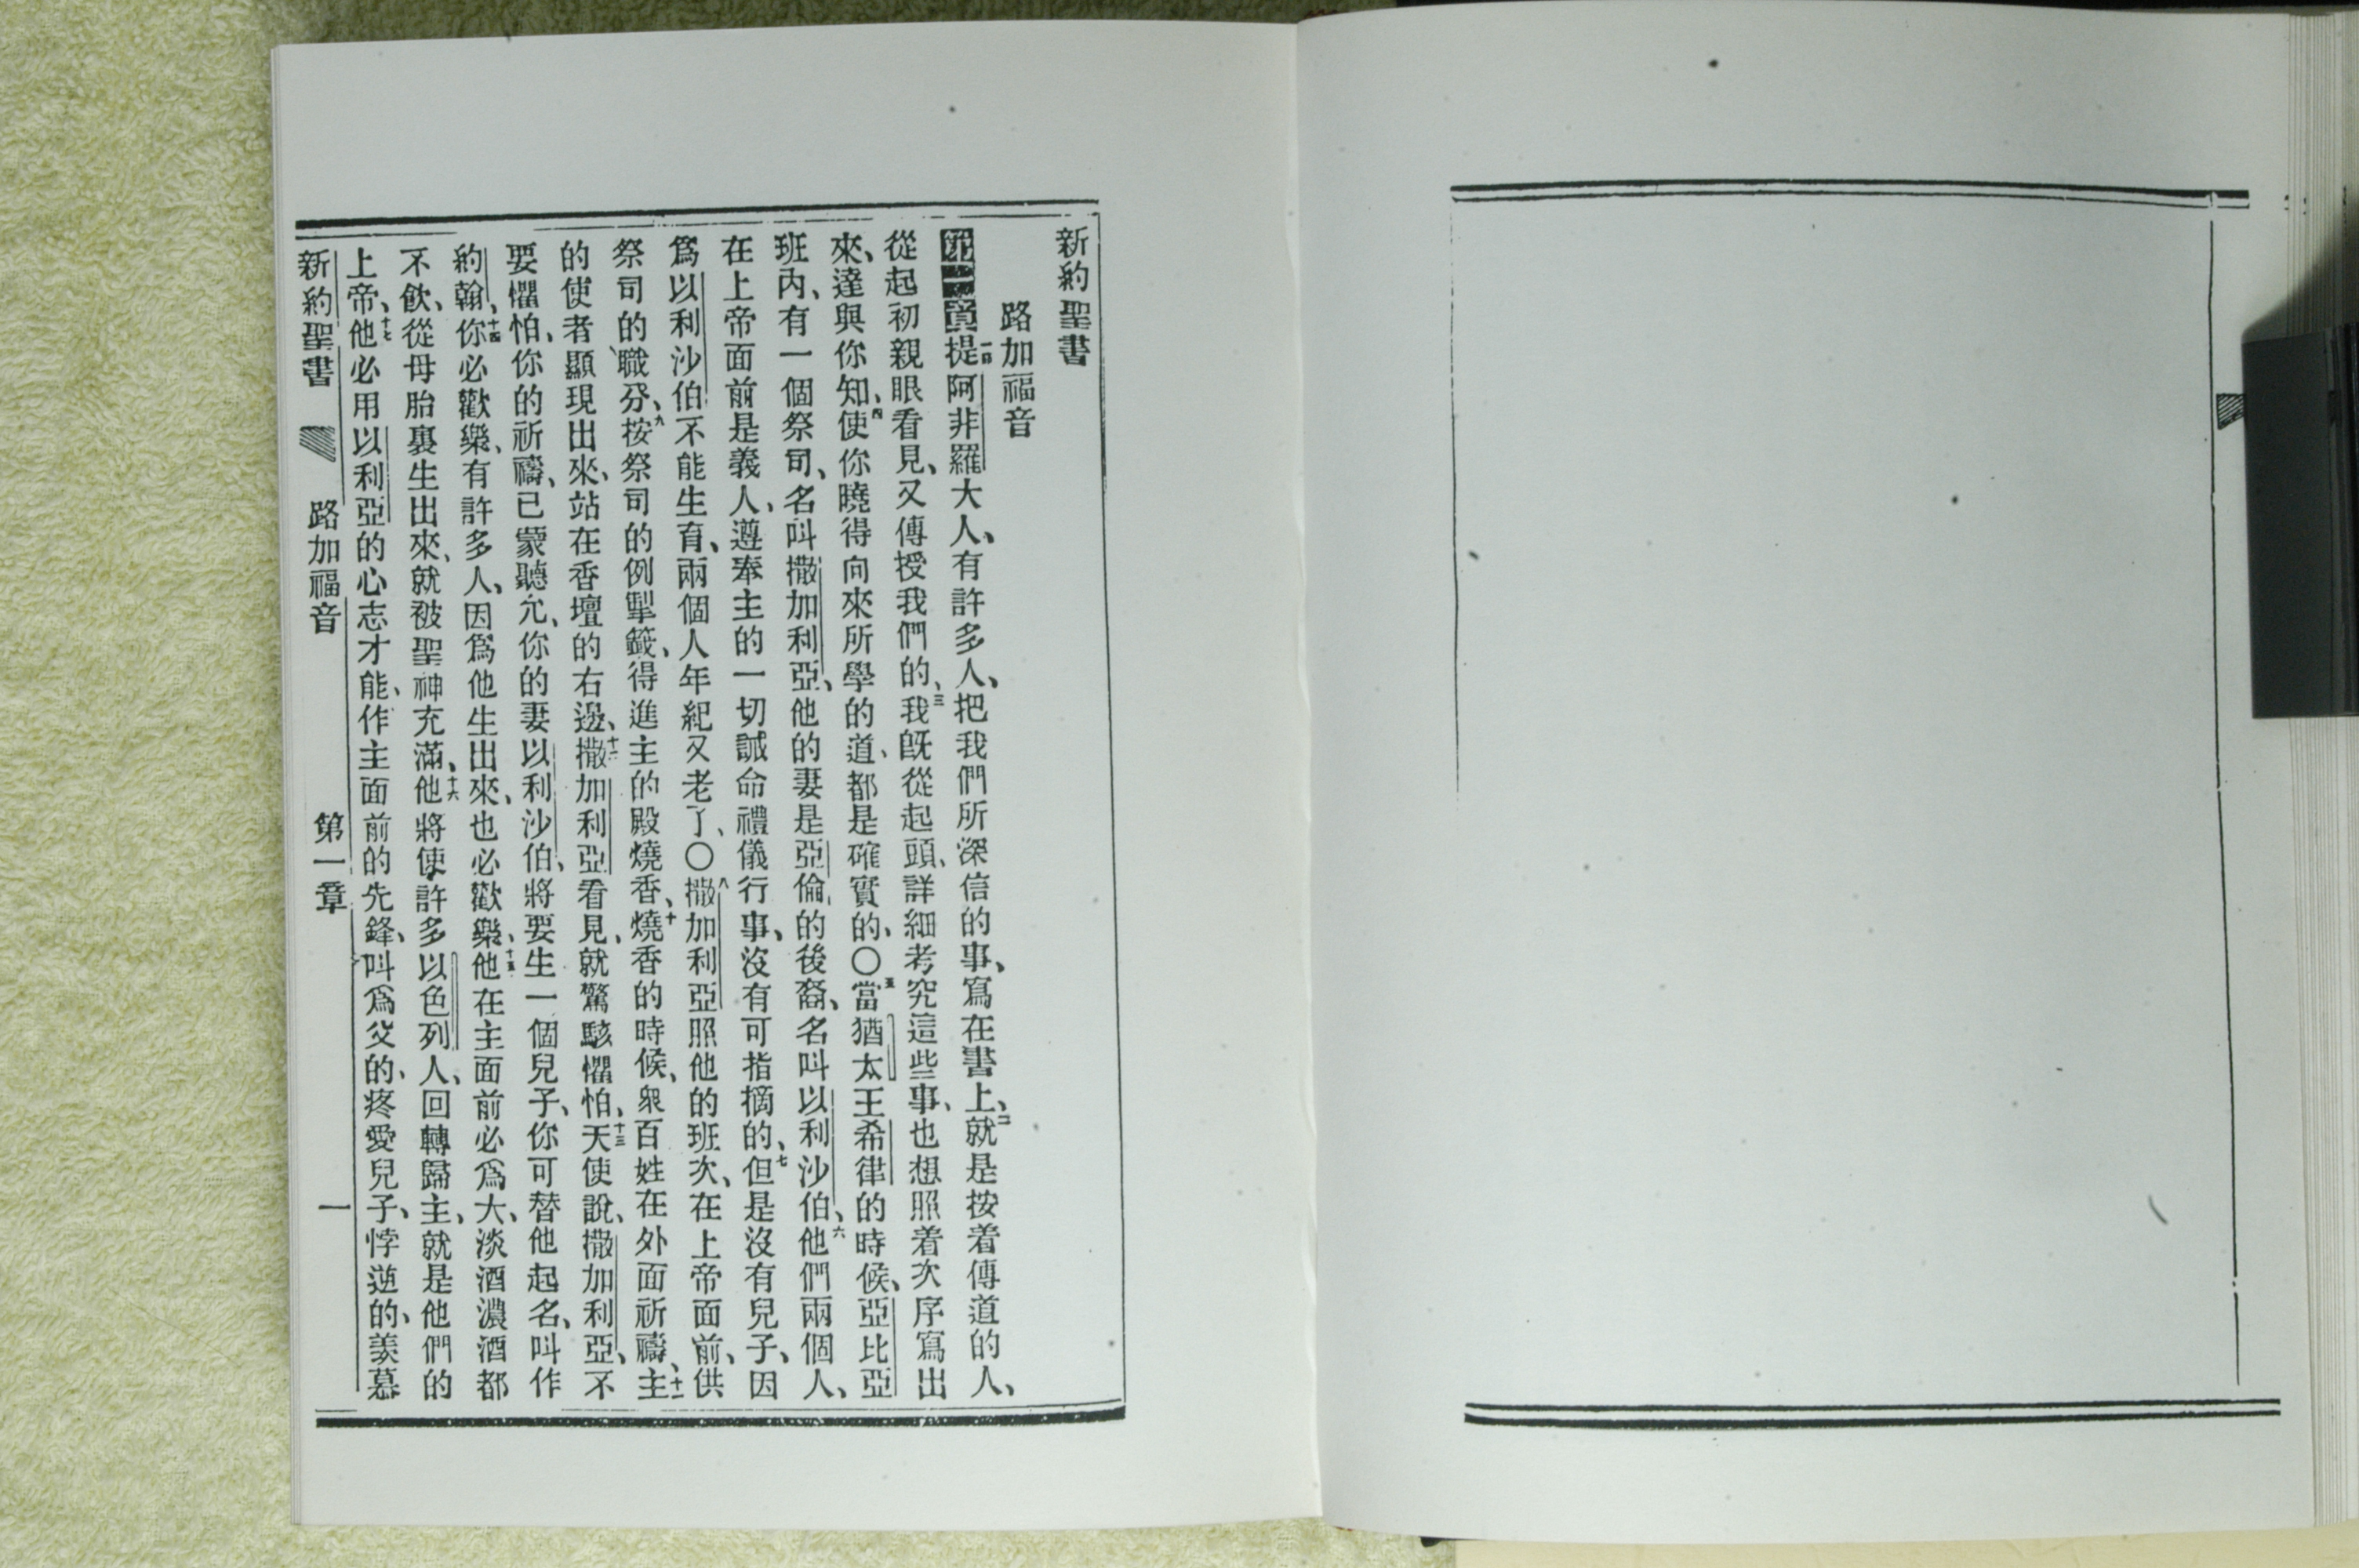 新約聖書
路加福音
第一章一提阿非羅大人、有許多人、把我們所深信的事、寫在書上、二就是按着傳道的人、
從起初親眼看見、又傳授我們的、三我旣從起頭、詳細考究這些事、也想照着次序寫出
來、達與你知、四使你曉得向來所學的道、都是確實的、〇五當猶太王希律的時候、亞比亞
班內、有一個祭司、名叫撒加利亞、他的妻是亞倫的後裔、名叫以利沙伯、六他們兩個人、
在上帝面前是義人、遵奉主的一切誡命禮儀行事、沒有可指摘的、七但是沒有兒子、因
爲以利沙伯不能生育、兩個人年紀又老了、〇八撒加利亞照他的班次、在上帝面前、供
祭司的職分、九按祭司的例掣籤、得進主的殿燒香、十燒香的時候、衆百姓在外面祈禱、十一主
的使者顯現出來、站在香壇的右邊、十二撒加利亞看見、就驚駭懼怕、十三天使說、撒加利亞、不
要懼怕、你的祈禱、已蒙聽允、你的妻以利沙伯、將要生一個兒子、你可替他起名、叫作
約翰、十四你必歡樂、有許多人、因爲他生出來、也必歡樂、十五他在主面前必爲大、淡酒濃酒都
不飲、從母胎裏生出來、就被聖神充滿、十六他將使許多以色列人、回轉歸主、就是他們的
上帝、十七他必用以利亞的心志才能、作主面前的先鋒、叫爲父的、疼愛兒子、悖逆的、羨慕
新約聖書 路加福音 第一章 一